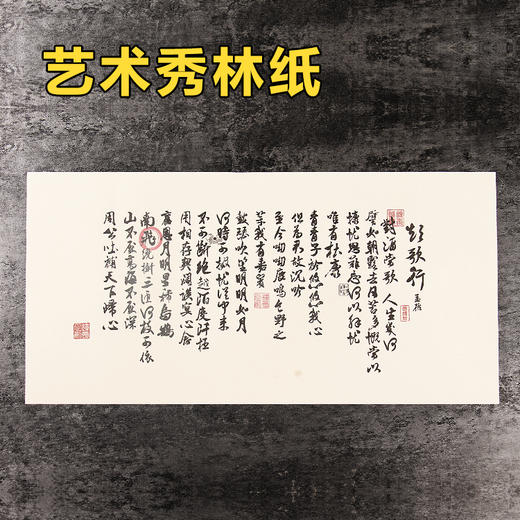 艺术秀林纸
短歌行
對酒當歌 人生幾何
譬如朝露去日苦多慨當以
慷憂思難忘何以解憂
唯有杜康
青青子衿悠悠我心
但為君故沉吟
至今呦呦鹿鳴食野之
苹我有嘉賓
鼓瑟吹笙明明如月
何時可掇憂從中來
不可斷絕越陌度阡枉
用相存契闊談讌心念
舊恩月明星稀烏鵲
南飛繞樹三匝何枝可依
山不厭高海不厭深
周公吐哺天下歸心